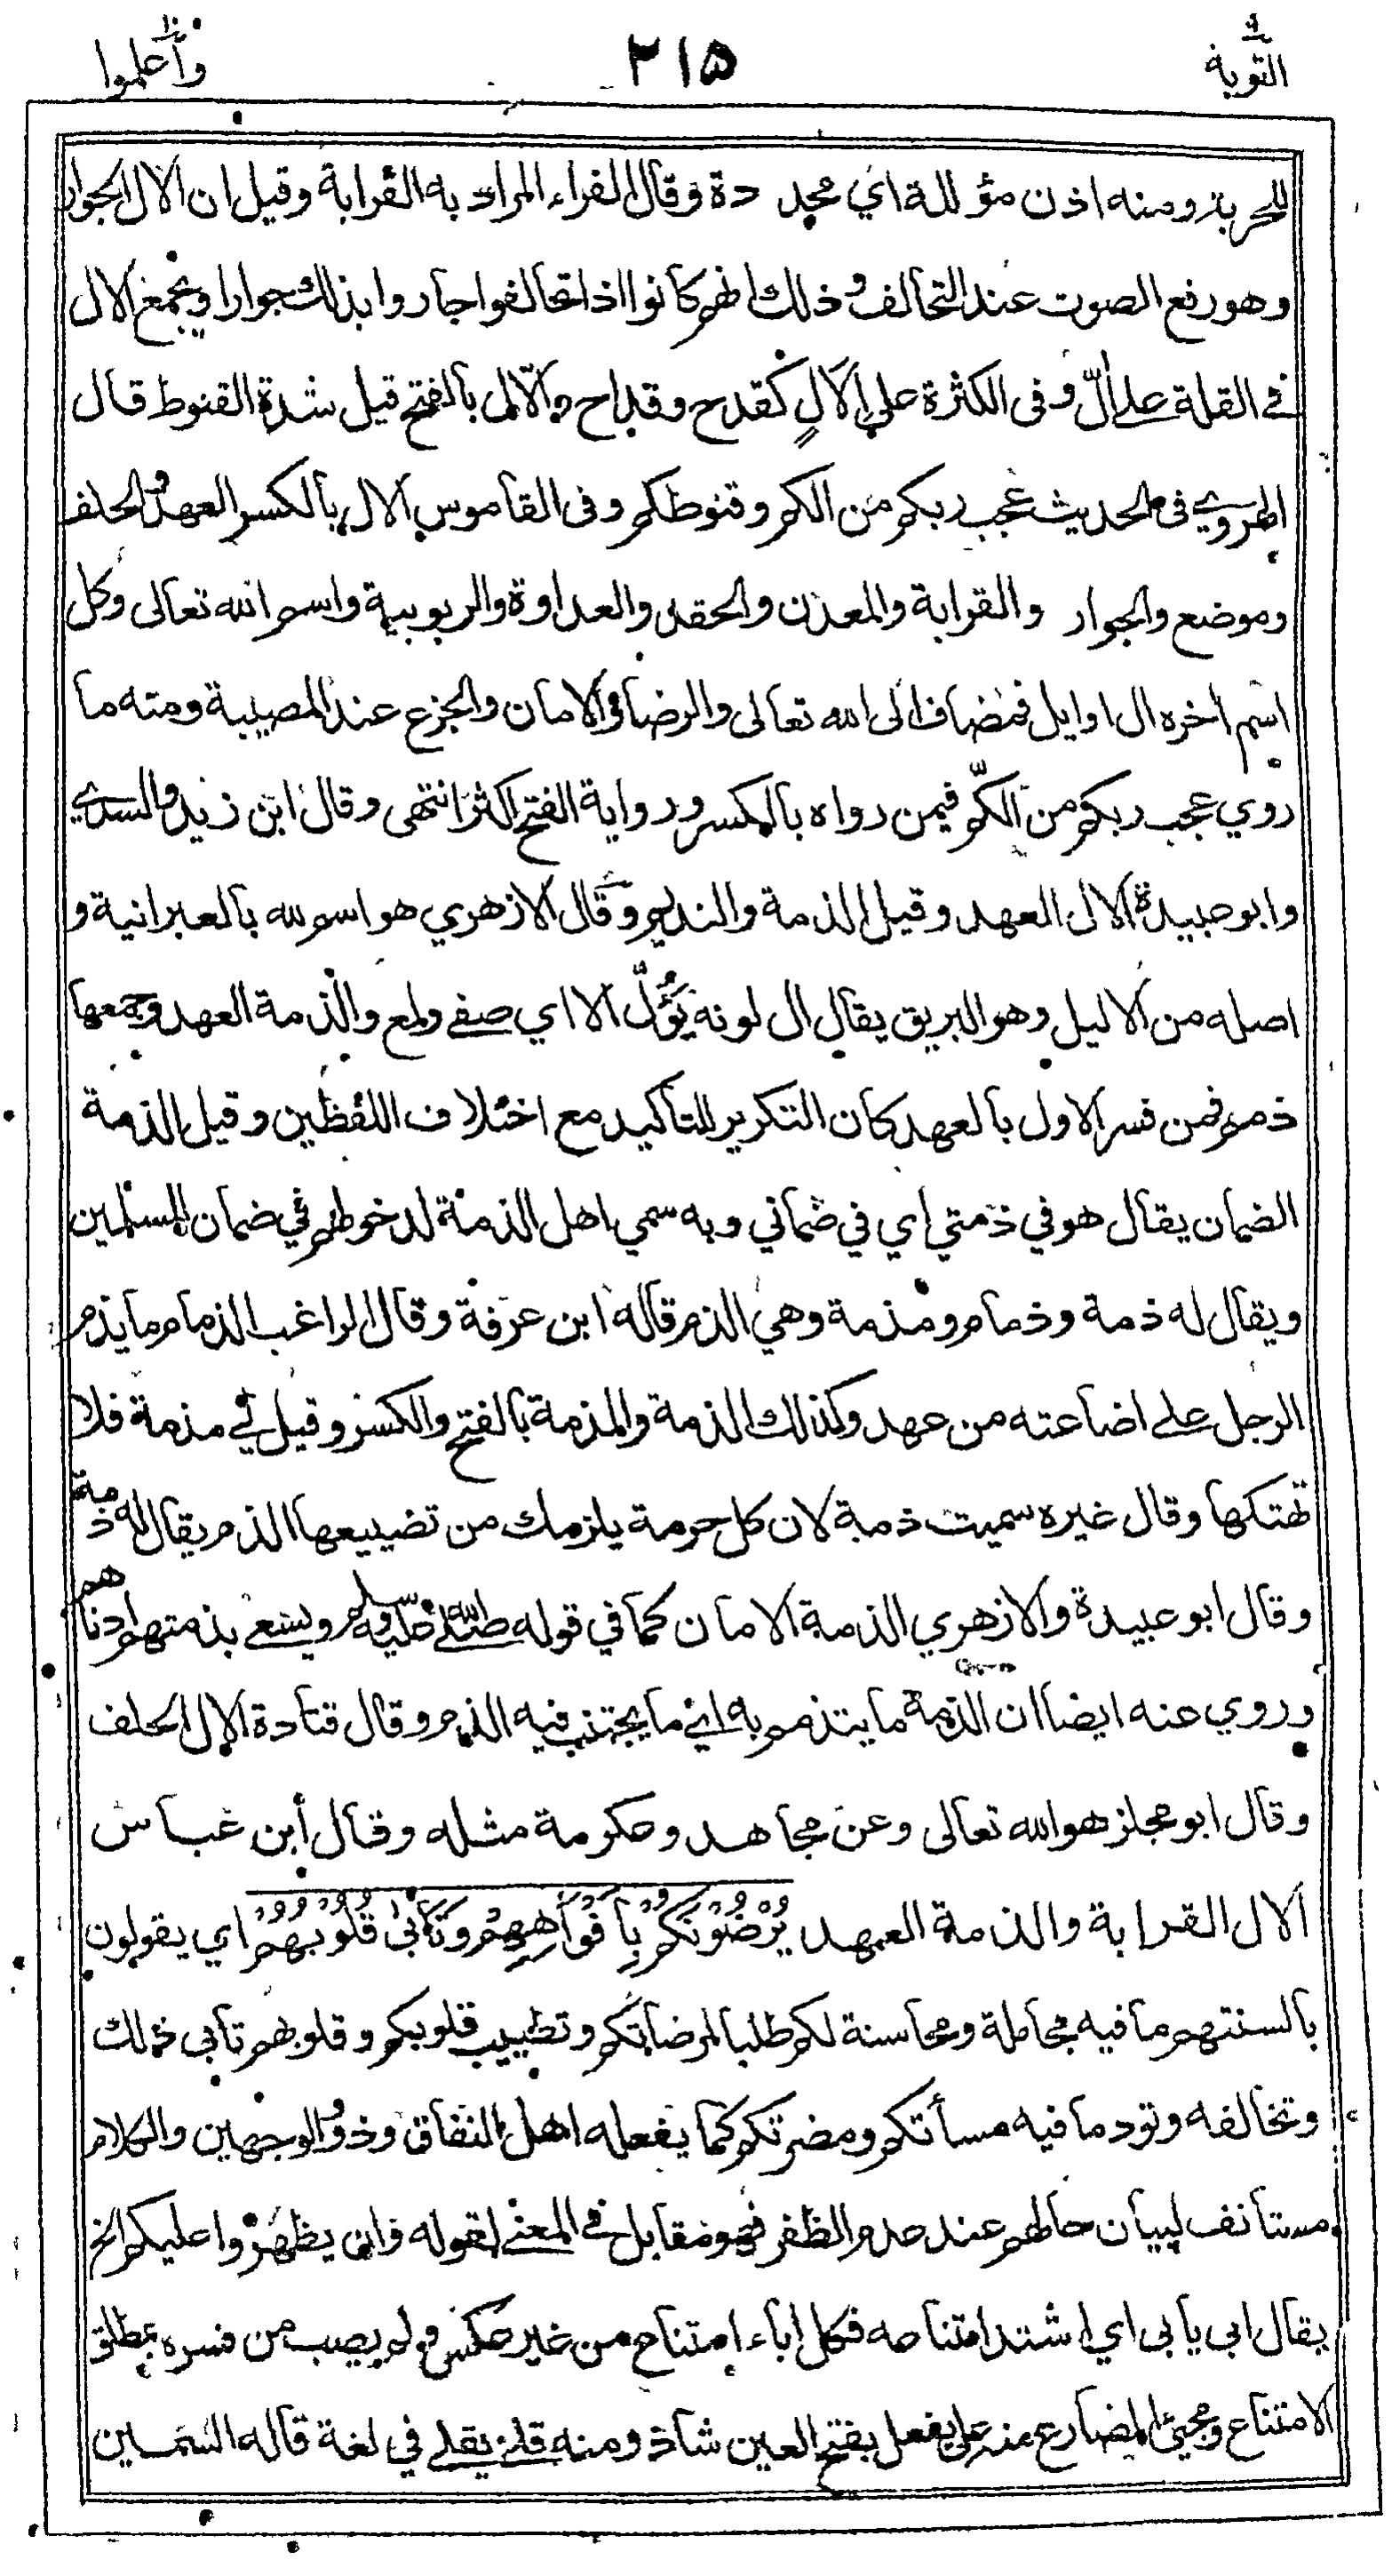 التوبة ٩
٢١٥
واعلموا ١٠
للحربة ومنه اذن مؤللة اي محددة وقال الفراء المراد به القرابة وقيل ان الال الجوار
وهو رفع الصوت عند التحالف وذلك انهم كانوا اذا تحالفوا جاروا بذلك جوارا ويجمع الال
في القلة على آلّ وفى الكثرة على إلالٍ كقدح وقداح والالّ بالفتح قيل شدة القنوط قال
الهروي في الحديث عجب ربكم من الكم وقنوطكم وفى القاموس الال بالكسر العهد والحلف
وموضع والجوار والقرابة والمعدن والحقد والعداوة والربوبية واسم الله تعالى وكل
اسم اخره ال او ايل فمضاف الى الله تعالى والرضا والامان والجزع عند المصيبة ومنه ما
روي عجب ربكم من الكّم فيمن رواه بالكسر ورواية الفتح اكثر انتهى وقال ابن زيد والسدي
وابو عبيدة الال العهد وقيل الذمة والنديم وقال الازهري هو اسم لله بالعبرانية و
اصله من الاليل وهو البريق يقال ال لونه يَؤُلّ الا اي صفى ولمع والذمة العهد وجمعها
ذمم فمن فسر الاول بالعهد كان التكرير للتأكيد مع اختلاف اللفظين وقيل الذمة
الضمان يقال هو في ذمتي اي في ضماني وبه سمي اهل الذمة لدخولهم في ضمان المسلمين
ويقال له ذمة وذمام ومذمة وهي الذم قاله ابن عرفة وقال الراغب الذمام ما يذم
الرجل على اضاعته من عهد وكذلك الذمة والمذمة بالفتح والكسر وقيل لي مذمة فلا
تهتكها وقال غيره سميت ذمة لان كل حرمة يلزمك من تضييعها الذم يقال له ذمة
وقال ابو عبيدة والازهري الذمة الامان كما في قوله صلى الله عليه وسلم ويسعى بذمتهم ادناهم
وروي عنه ايضا ان الذمة ما يتذمم به اي ما يجتنب فيه الذم وقال قتادة الإل الحلف
وقال ابو مجلز هو الله تعالى وعن مجاهد وعكرمة مثله وقال أبن عباس
الال القرابة والذمة العهد يُرْضُوْنَكُمْ بِاَفْوَاهِهِمْ وَتَأْبىٰ قُلُوْبُهُمْ اي يقولون
بالسنتهم ما فيه مجاملة ومحاسنة لكم طلبا لمرضاتكم وتطييب قلوبكم وقلوبهم تابى ذلك
وتخالفه وتود ما فيه مسأتكم ومضرتكم كما يفعله اهل النفاق وذوو الوجهين والكلام
مستانف لبيان حالهم عند عدم الظفر فهو مقابل في المعنى لقوله وان يظهروا عليكم الخ
يقال ابى يابى اي اشتد امتناعه فكل إباء إمتناع من غير عكس ولم يصب من فسره بمطلق
الامتناع ومجيئ المضارع منه على يفعل بفتح العين شاذ ومنه قلى يقلى في لغة قاله السمين